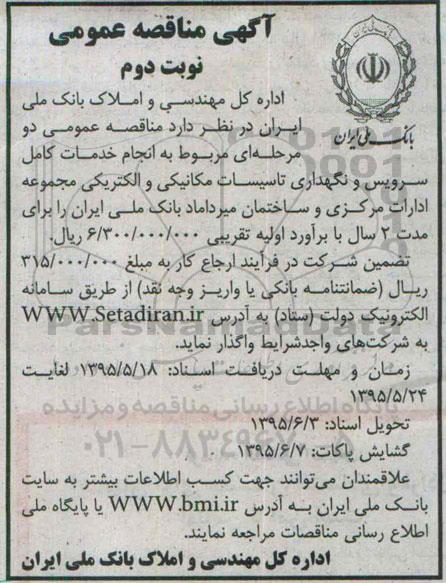 آگهی مناقصه عمومی
نوبت دوم
بانک ملی ایران
اداره کل مهندسی و املاک بانک ملی
ایران در نظر دارد مناقصه عمومی دو
مرحله‌ای مربوط به انجام خدمات کامل
سرویس و نگهداری تاسیسات مکانیکی و الکتریکی مجموعه
ادارات مرکزی و ساختمان میرداماد بانک ملی ایران را برای
مدت ۲ سال با برآورد اولیه تقریبی ۶/۳۰۰/۰۰۰/۰۰۰ ریال.
تضمین شرکت در فرآیند ارجاع کار به مبلغ ۳۱۵/۰۰۰/۰۰۰
ریال (ضمانتنامه بانکی یا واریز وجه نقد) از طریق سامانه
الکترونیک دولت (ستاد) به آدرس WWW.Setadiran.ir
به شرکت‌های واجدشرایط واگذار نماید.
زمان و مهلت دریافت اسناد: ۱۳۹۵/۵/۱۸ لغایت
۱۳۹۵/۵/۲۴
تحویل اسناد: ۱۳۹۵/۶/۳
گشایش پاکات: ۱۳۹۵/۶/۷
علاقمندان می‌توانند جهت کسب اطلاعات بیشتر به سایت
بانک ملی ایران به آدرس WWW.bmi.ir یا پایگاه ملی
اطلاع رسانی مناقصات مراجعه نمایند.
اداره کل مهندسی و املاک بانک ملی ایران
ParsNamadData
پایگاه اطلاع رسانی مناقصه و مزایده